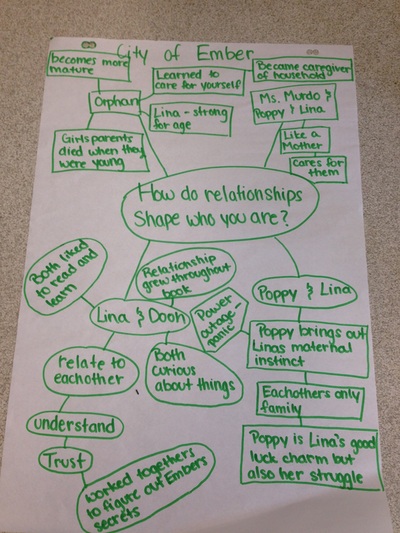 City of Ember
becomes more
mature
Orphan
Learned to
care for yourself
Lina - strong
for age
Girls parents
died when they
were young
Became caregiver
of household
Ms. Murdo &
Poppy & Lina
Like a
Mother
cares for
them
How do relationships
Shape who you are?
Both liked
to read and
learn
Relationship
grew throughout
book
Lina & Doon
Power
outage-
panic
Both
curious
about things
relate to
eachother
understand
Trust
worked togethers
to figure out Embers
secrets
Poppy & Lina
Poppy brings out
Linas maternal
instinct
Eachothers only
family
Poppy is Lina's good
luck charm but
also her struggle